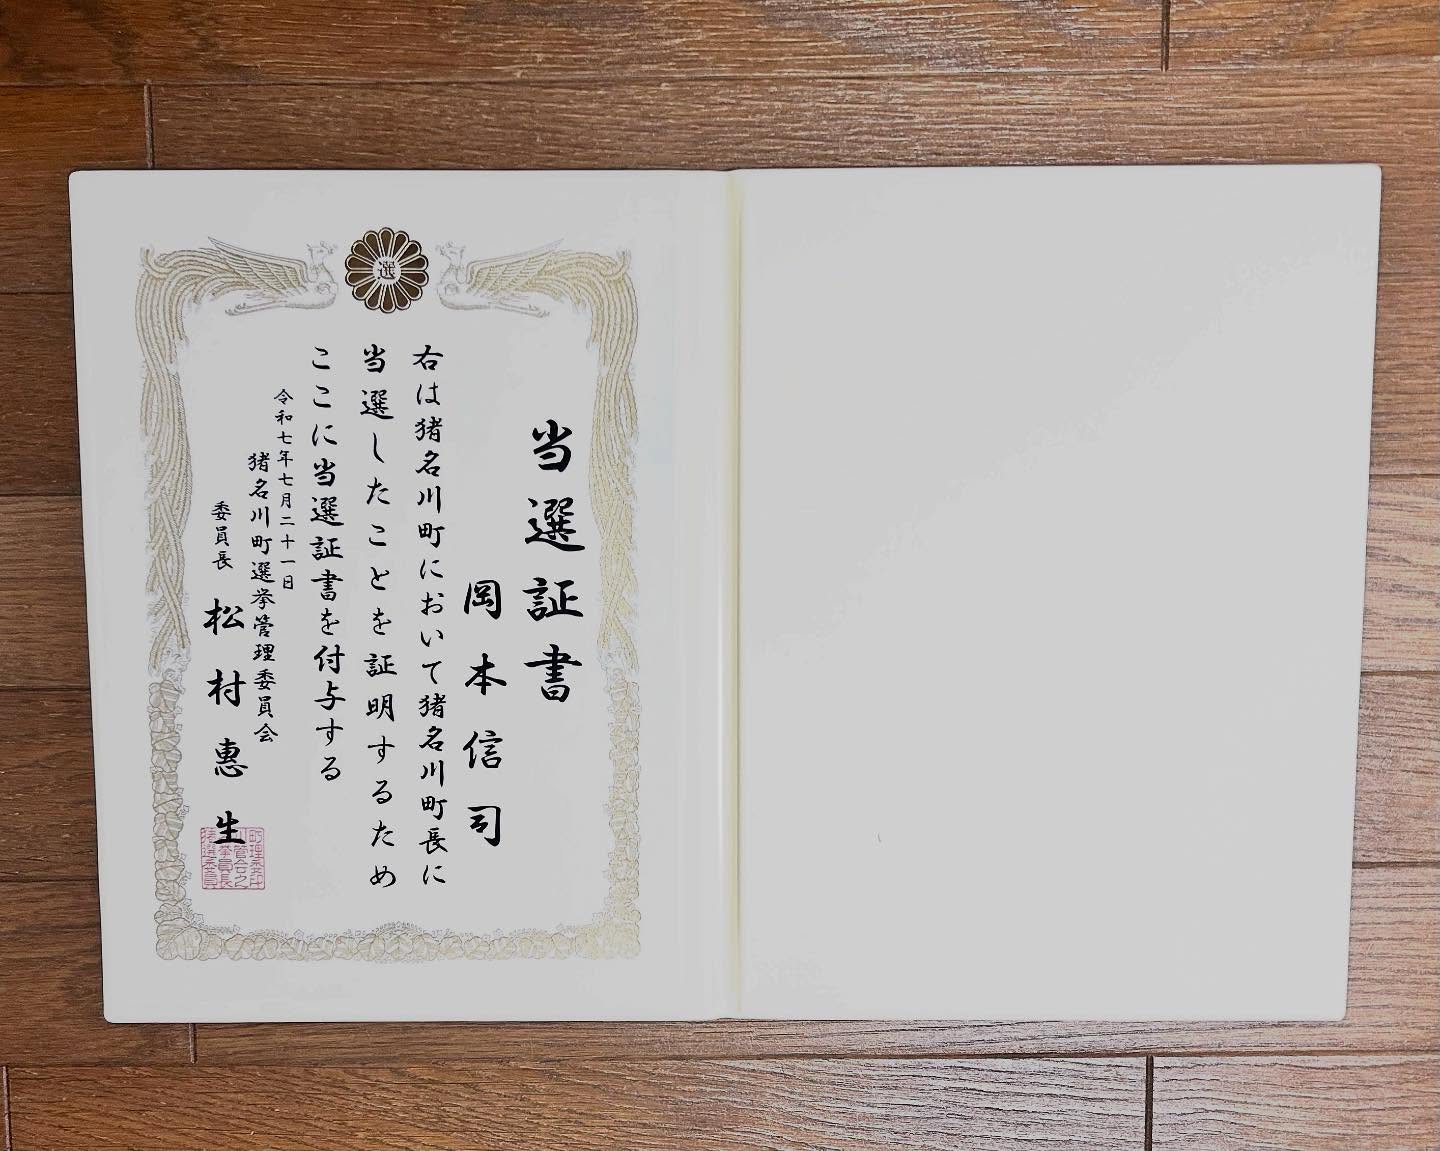 選
当選証書
岡本信司
右は猪名川町において猪名川町長に
当選したことを証明するため
ここに当選証書を付与する
令和七年七月二十一日
猪名川町選挙管理委員会
委員長 松村惠生